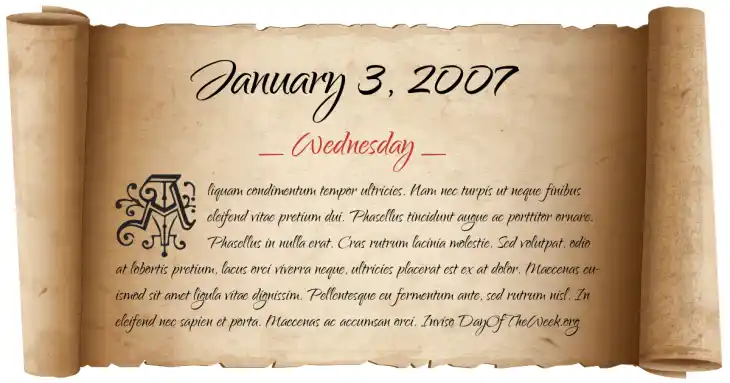 January 3, 2007
_ Wednesday _
Aliquam condimentum tempor ultricies. Nam nec turpis ut neque finibus
eleifend vitae pretium dui. Phasellus tincidunt augue ac porttitor ornare.
Phasellus in nulla erat. Cras rutrum lacinia molestie. Sed volutpat, odio
at lobortis pretium, lacus orci viverra neque, ultricies placerat est ex at dolor. Maecenas eu-
ismod sit amet ligula vitae dignissim. Pellentesque eu fermentum ante, sed rutrum nisl. In
eleifend nec sapien et porta. Maecenas ac accumsan orci. Inviso DayOfTheWeek.org